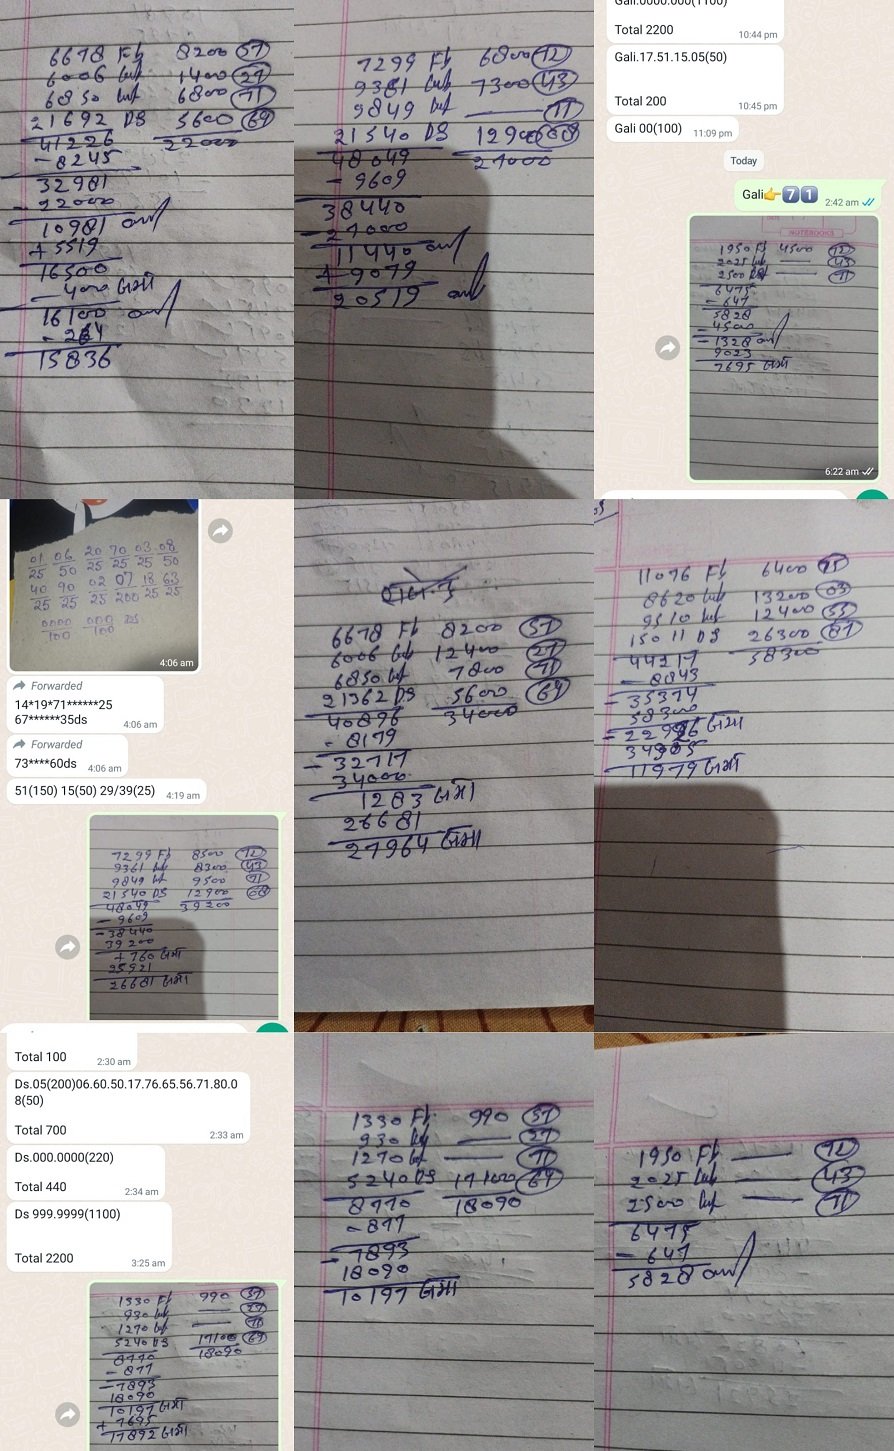 6678 FB 8200 57
6006 1400 27
6850 6800 71
21692 DS 5600 69
41226 22000
- 8245
32981
- 22000
10981
+ 5519
16500
- 400 જમા
16100
- 264
15836
7299 FB 6800 72
9381 7300 43
9849 — 71
21540 DS 12900 68
48049 27000
- 9609
38440
- 27000
11440
+ 9079
20519
Gali.0000.000(1100)
Total 2200
10:44 pm
Gali.17.51.15.05(50)
Total 200
10:45 pm
Gali 00(100) 11:09 pm
Today
Gali👉7️⃣1️⃣ 2:42 am
NOTEBOOKS
1950 FB 4500 72
2025 43
2500 — 71
6475
- 647
5828
- 4500
- 1328
9023
7695 જમા
6:22 am
01 06 20 70 03 08
25 50 25 25 25 50
40 90 02 07 18 63
25 25 25 200 25 25
0000 000 DS
100 100
4:06 am
Forwarded
14*19*71******25
67******35ds 4:06 am
Forwarded
73****60ds 4:06 am
51(150) 15(50) 29/39(25) 4:19 am
7299 FB 8500 72
9361 8300 43
9849 9500 71
21540 DS 12900 68
48049 39200
- 9609
- 38440
39200
+ 760 જમા
25921
26681 જમા
6678 FB 8200 57
6006 12400 27
6850 7800 71
21362 DS 5600 69
40896 34000
- 8179
- 32717
34000
1283 જમા
26681
27964 જમા
11076 FB 6400 75
8620 13200 03
9510 12400 55
15011 DS 26300 87
44217 58300
- 8843
- 35374
58300
= 22926 જમા
34905
11979 જમા
Total 100 2:30 am
Ds.05(200)06.60.50.17.76.65.56.71.80.0
8(50)
Total 700 2:33 am
Ds.000.0000(220)
Total 440 2:34 am
Ds 999.9999(1100)
Total 2200 3:25 am
1330 FB 990 57
930 — 27
1270 — 71
5240 DS 17100 69
8770 18090
- 877
- 7893
18090
10197 જમા
+ 7695
17892 જમા
1330 FB 990 57
930 — 27
1270 — 71
5240 DS 17100 69
8770 18090
- 877
- 7893
18090
10197 જમા
1950 FB — 72
2025 — 43
2500 — 71
6475
- 647
5828